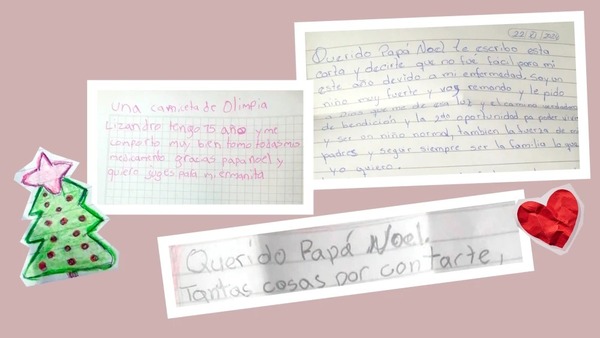 una camiseta de Olimpia
Lizandro tengo 15 años y me
comporto muy bien tomo todas mis
medicamento gracas papa noel y
quiero juges para mi ermanita
Querido Papá Noel le escribo esta
carta y decirte que no fué fácil para mi
este año devido a mi enfermedad. Soy un
niño muy fuerte y voy remando y le pido
a Dios que me de esa luz y el camino verdadero
de bendición y la oportunidad pa poder vivir
y ser un niño normal, tambien la fuerza de mis
padres y seguir siempre ser la familia lo que
yo quiero.
Querido Papá Noel.
Tantas cosas por contarte,